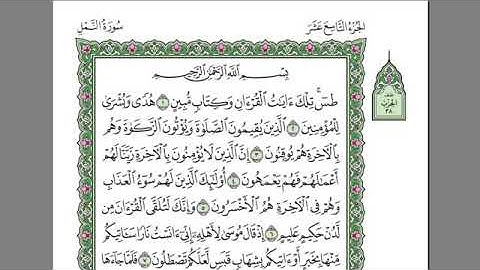 سُورَةُ النَّمْلِ
الجُزْءُ التَّاسِعَ عَشَرَ
نصف
الحزب
٣٨
بِسْمِ اللَّهِ الرَّحْمَٰنِ الرَّحِيمِ
طسٓ ۚ تِلْكَ ءَايَٰتُ الْقُرْءَانِ وَكِتَابٍ مُّبِينٍ ١ هُدًى وَبُشْرَىٰ
لِلْمُؤْمِنِينَ ٢ الَّذِينَ يُقِيمُونَ الصَّلَوٰةَ وَيُؤْتُونَ الزَّكَوٰةَ وَهُم
بِالْءَاخِرَةِ هُمْ يُوقِنُونَ ٣ إِنَّ الَّذِينَ لَا يُؤْمِنُونَ بِالْءَاخِرَةِ زَيَّنَّا لَهُمْ
أَعْمَٰلَهُمْ فَهُمْ يَعْمَهُونَ ٤ أُو۟لَٰٓئِكَ الَّذِينَ لَهُمْ سُوٓءُ الْعَذَابِ
وَهُمْ فِي الْءَاخِرَةِ هُمُ الْأَخْسَرُونَ ٥ وَإِنَّكَ لَتُلَقَّى الْقُرْءَانَ مِن
لَّدُنْ حَكِيمٍ عَلِيمٍ ٦ إِذْ قَالَ مُوسَىٰ لِأَهْلِهِۦٓ إِنِّيٓ ءَانَسْتُ نَارًا سَـَٔاتِيكُم
مِّنْهَا بِخَبَرٍ أَوْ ءَاتِيكُم بِشِهَابٍ قَبَسٍ لَّعَلَّكُمْ تَصْطَلُونَ ٧ فَلَمَّا جَآءَهَا